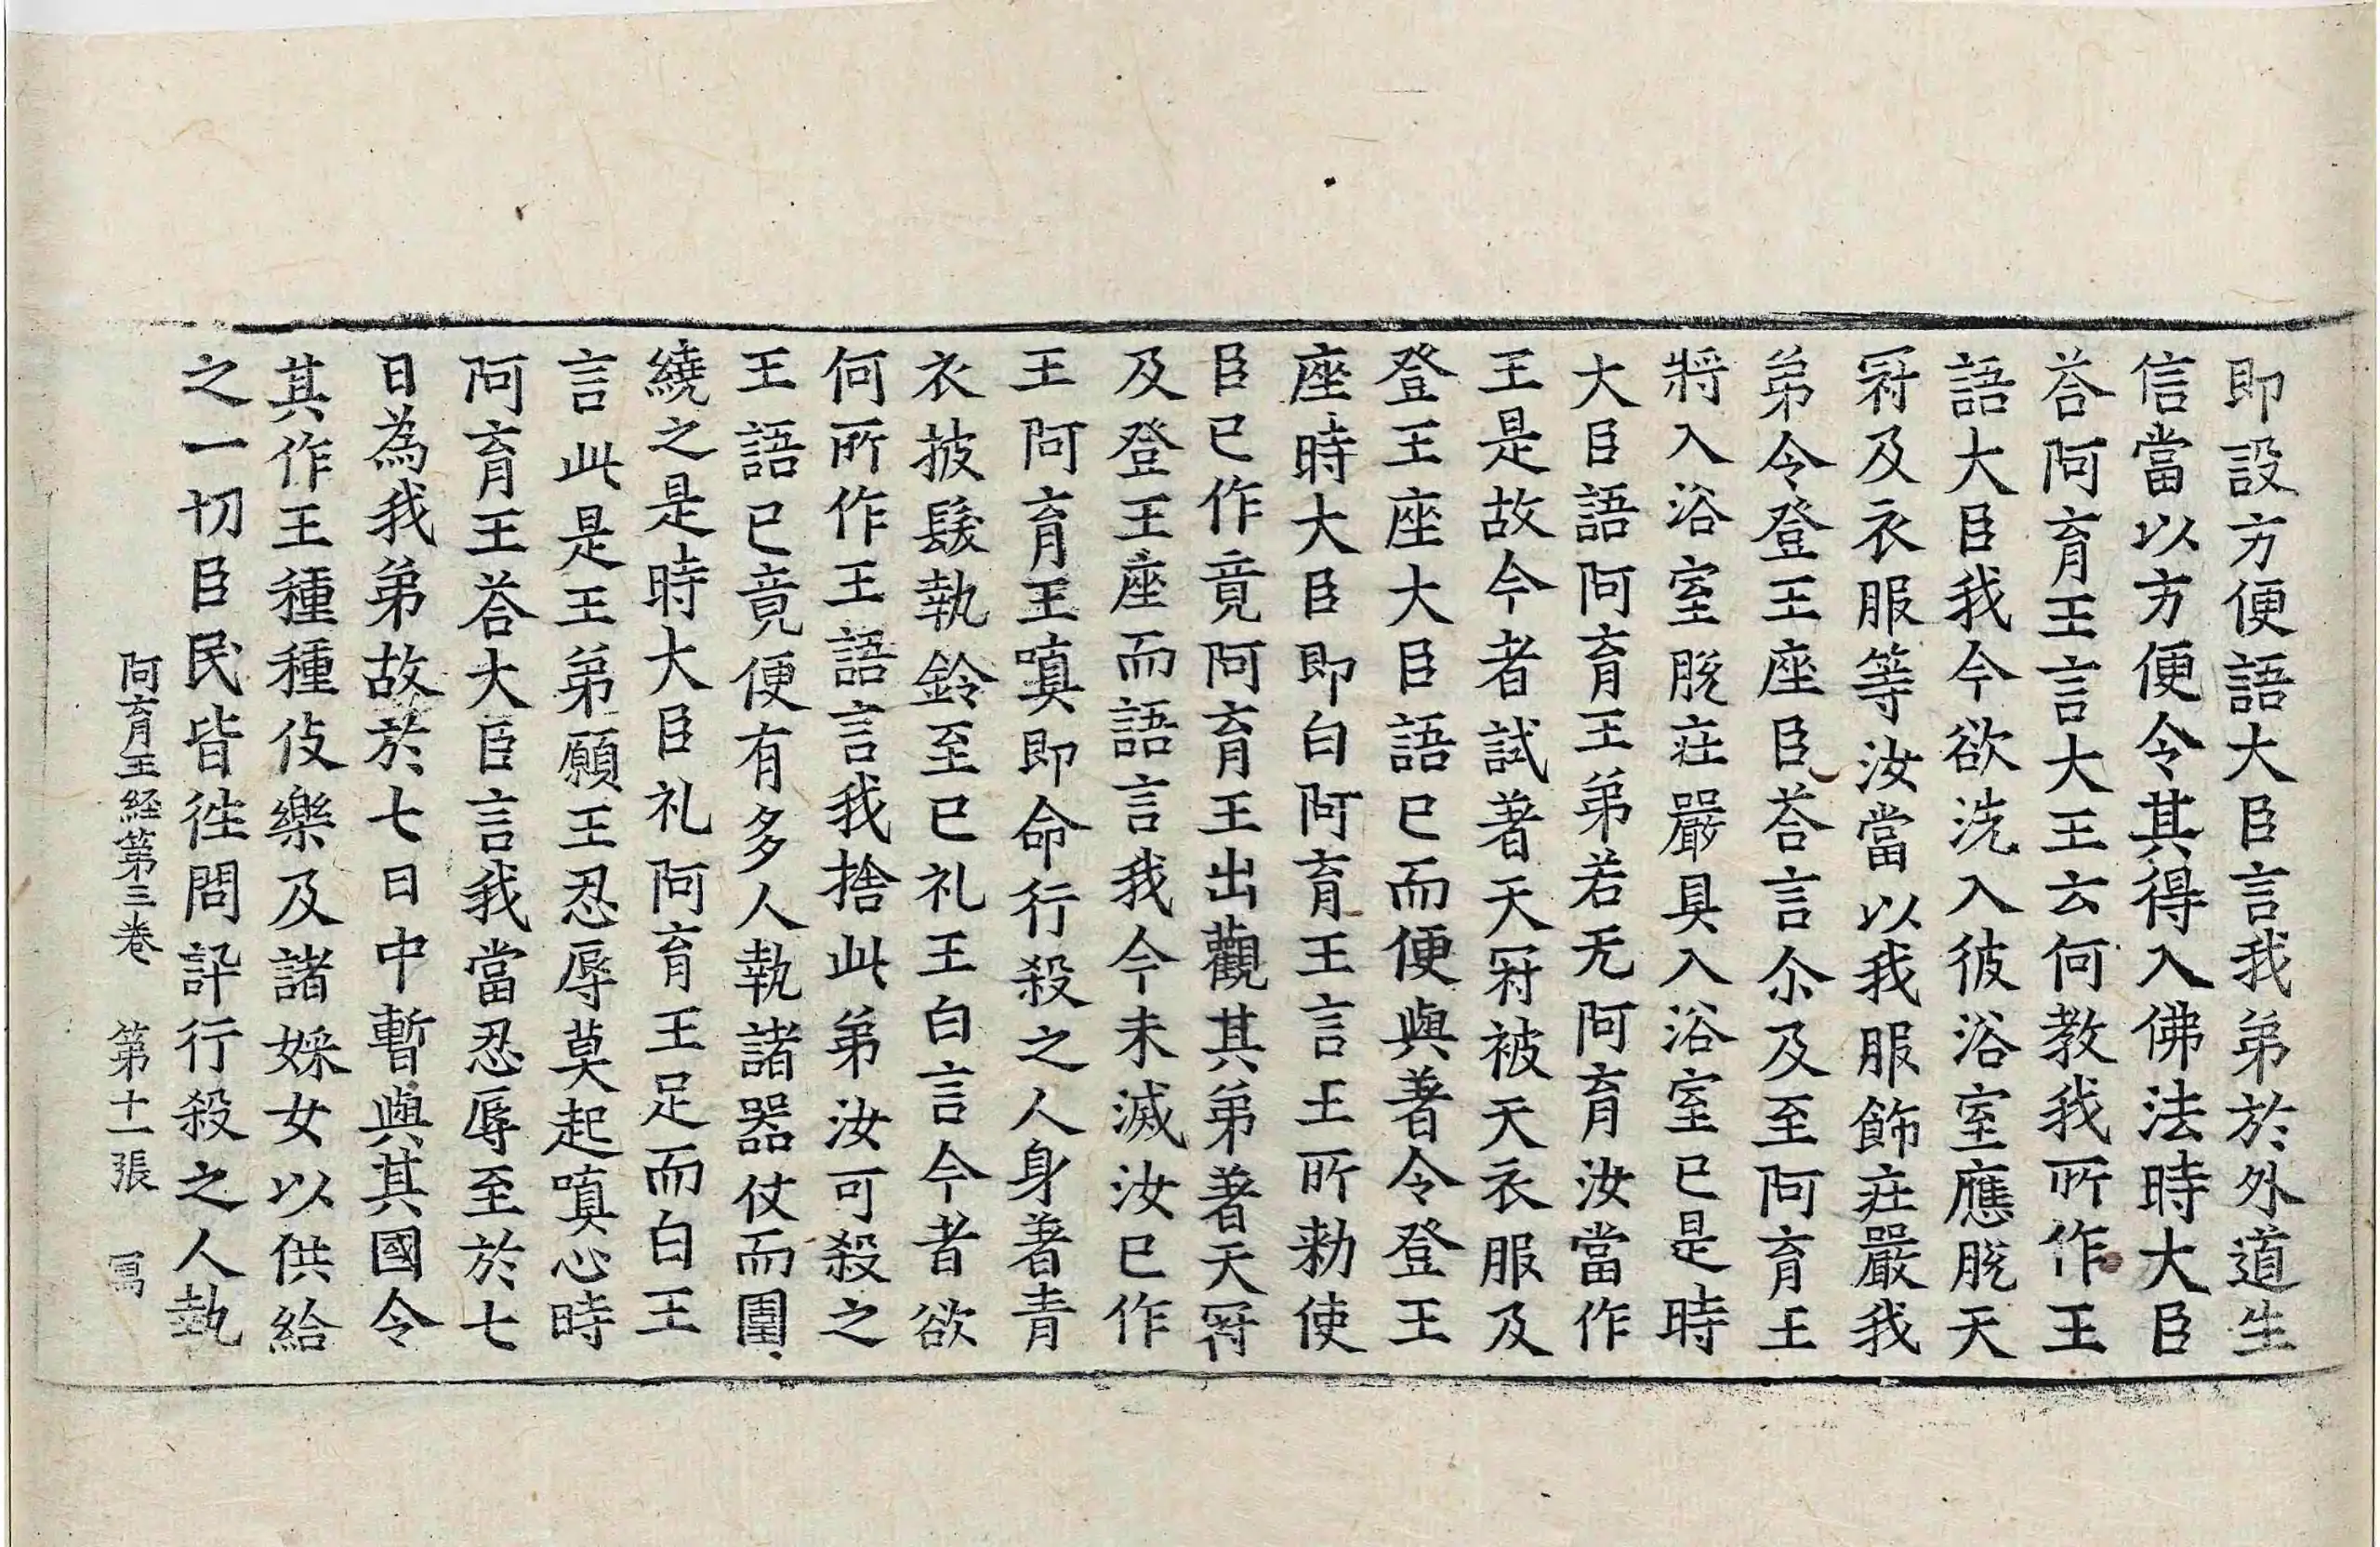 即設方便語大臣言我弟於外道生
信當以方便令其得入佛法時大臣
荅阿育王言大王云何教我所作王
語大臣我今欲洗入彼浴室應脫天
冠及衣服等汝當以我服飾庄嚴我
弟令登王座臣荅言尒及至阿育王
將入浴室脫庄嚴具入浴室已是時
大臣語阿育王弟若无阿育汝當作
王是故今者試著天冠被天衣服及
登王座大臣語已而便與著令登王
座時大臣即白阿育王言王所勑使
臣已作竟阿育王出觀其弟著天冠
及登王座而語言我今未滅汝已作
王阿育王嗔即命行殺之人身著青
衣披髮執鈴至已礼王白言今者欲
何所作王語言我捨此弟汝可殺之
王語已竟便有多人執諸器仗而圍
繞之是時大臣礼阿育王足而白王
言此是王弟願王忍辱莫起嗔心時
阿育王荅大臣言我當忍辱至於七
日為我弟故於七日中暫與其國令
其作王種種伎樂及諸婇女以供給
之一切臣民皆徃問訊行殺之人執
阿育王経第三卷 第十一張 寫